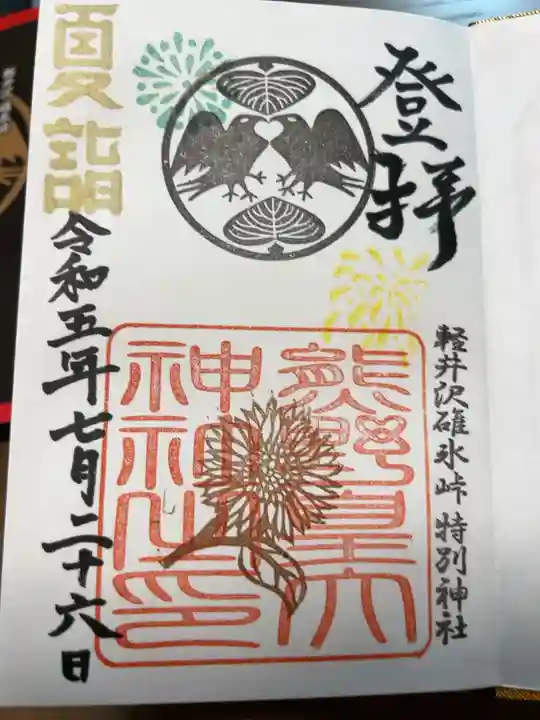 登拝
軽井沢碓氷峠 特別神社
熊野皇大
神社之印
夏詣
令和五年七月二十六日